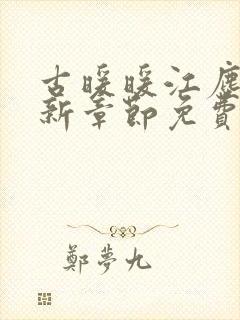 古暖暖江塵
新章節免費
鄭夢九